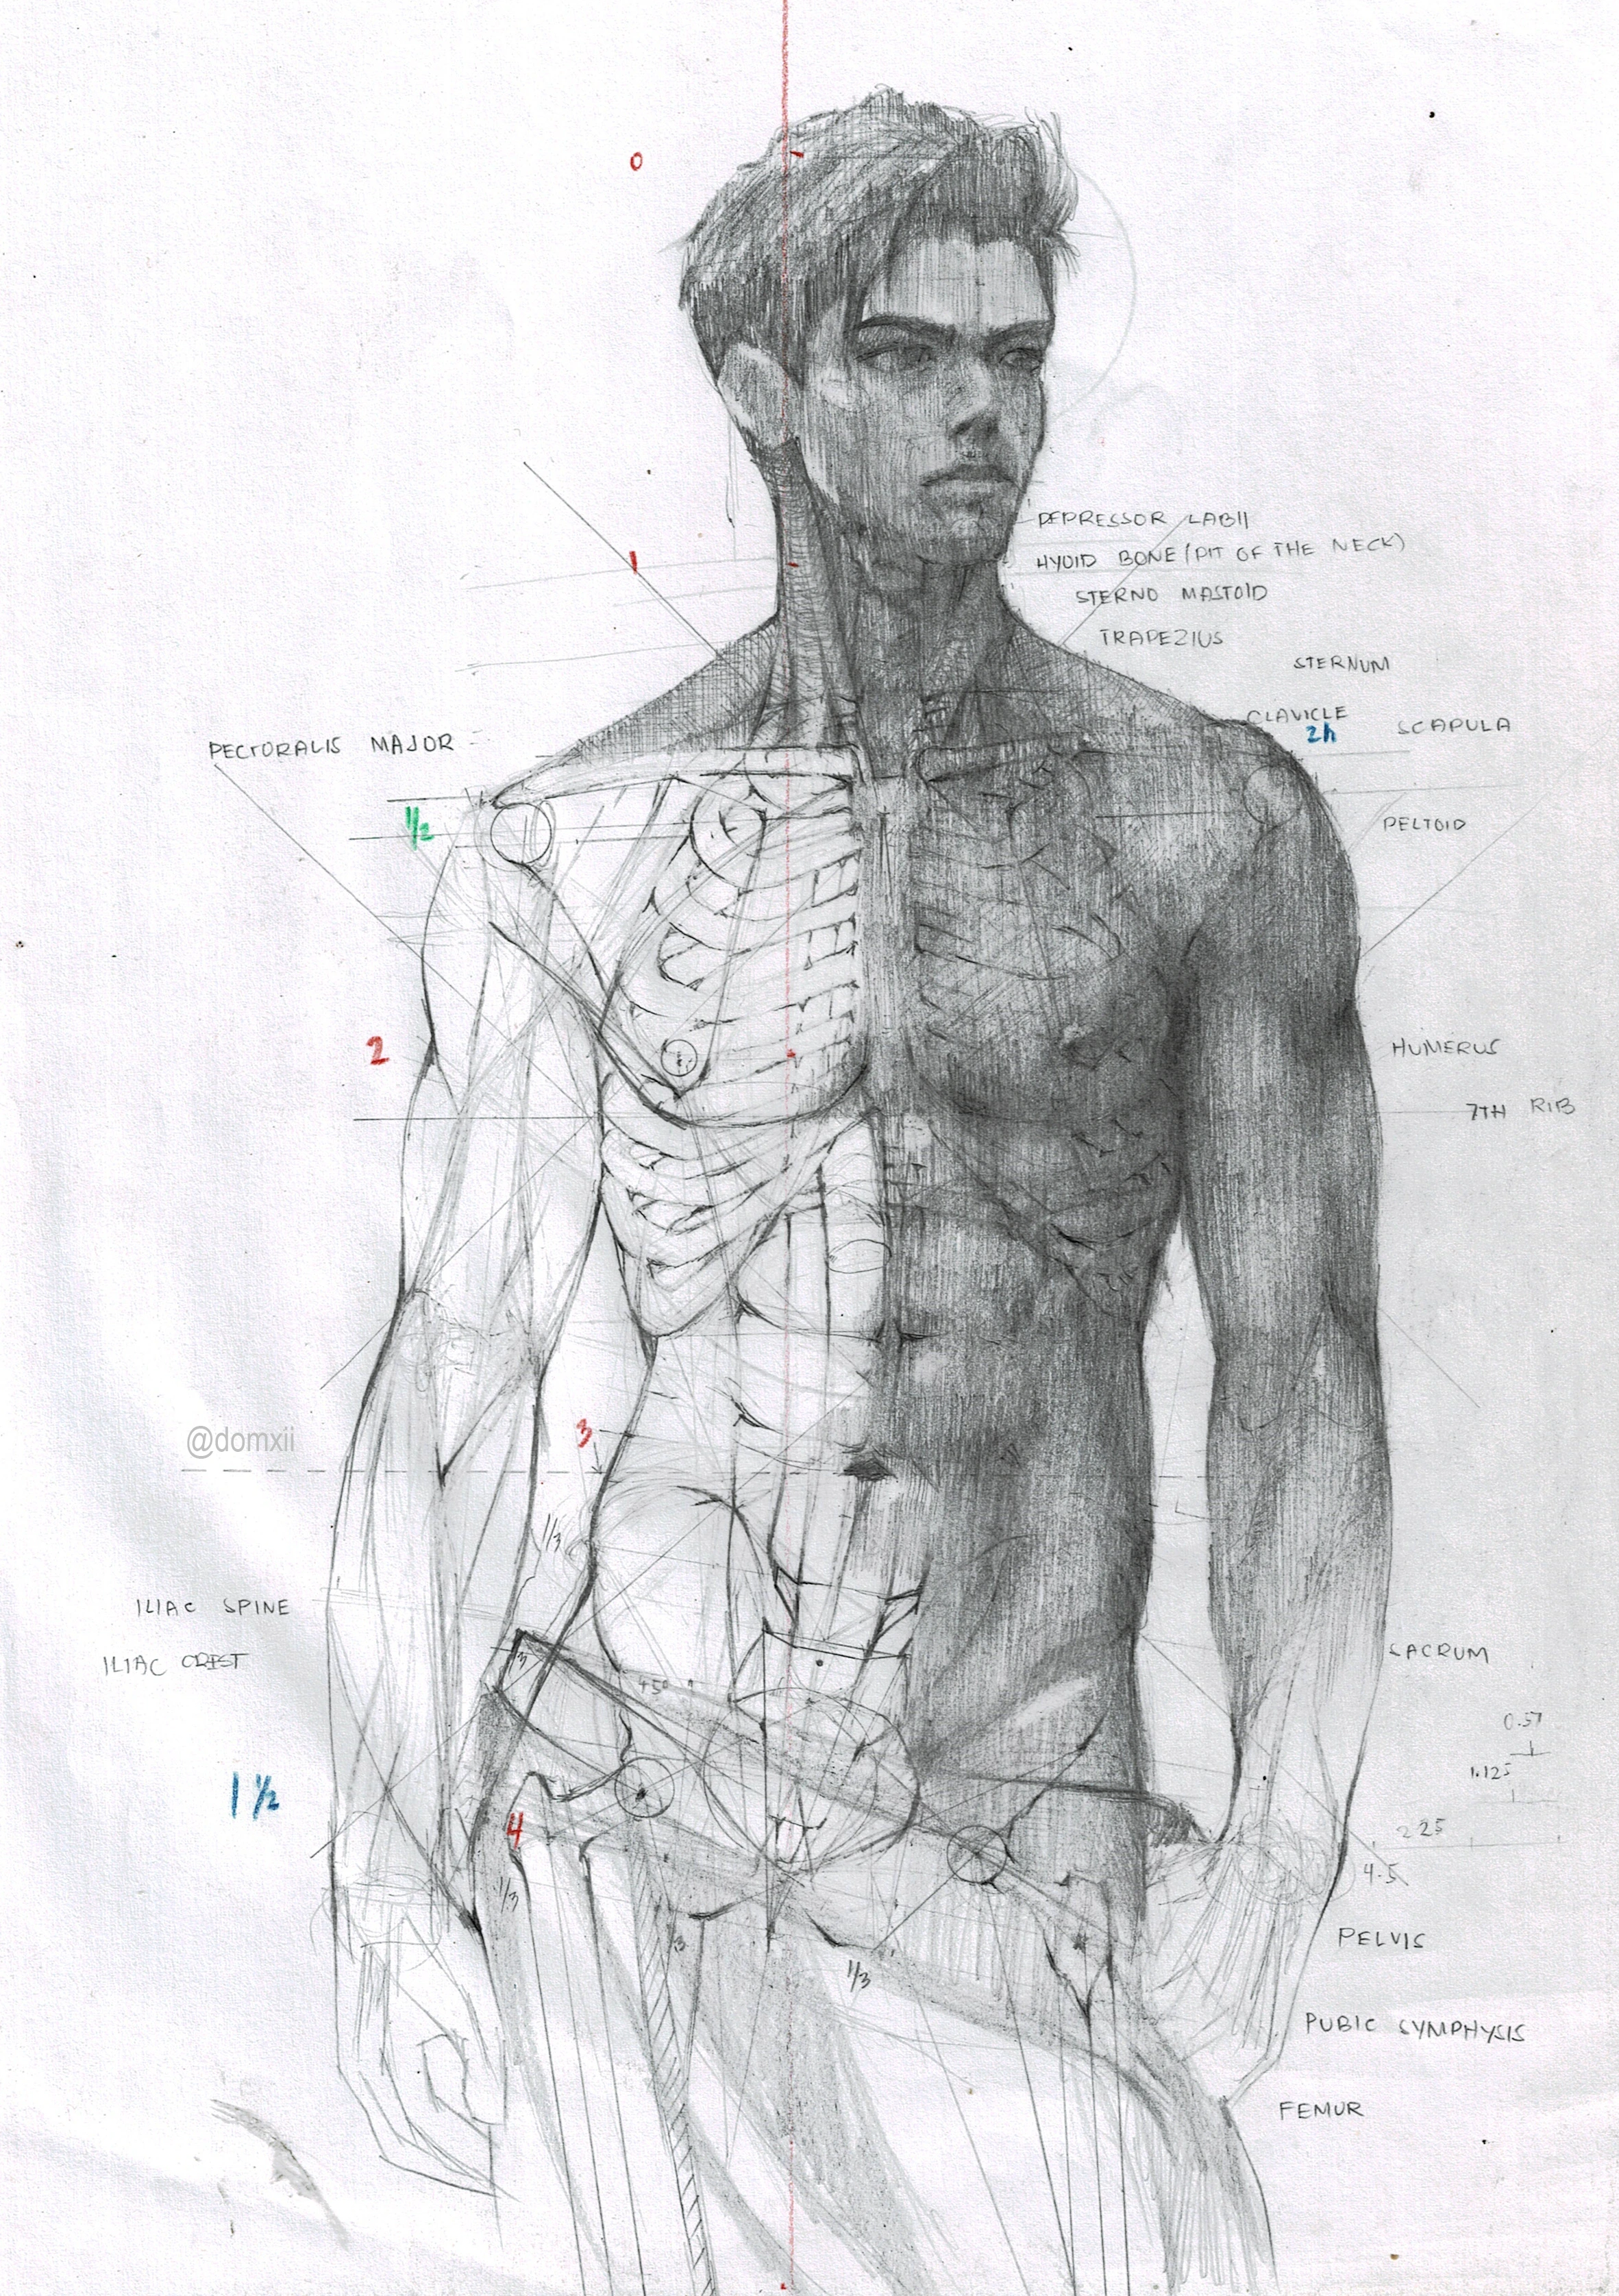 0
DEPRESSOR LABII
HYOID BONE (PIT OF THE NECK)
1
STERNO MASTOID
TRAPEZIUS
STERNUM
CLAVICLE
2h
SCAPULA
PECTORALIS MAJOR
1/2
DELTOID
2
HUMERUS
7TH RIB
3
@domxii
1/3
ILIAC SPINE
ILIAC CREST
SACRUM
0.57
1.125
1 1/2
4
2.25
4.5
1/3
PELVIS
1/3
PUBIC SYMPHYSIS
FEMUR